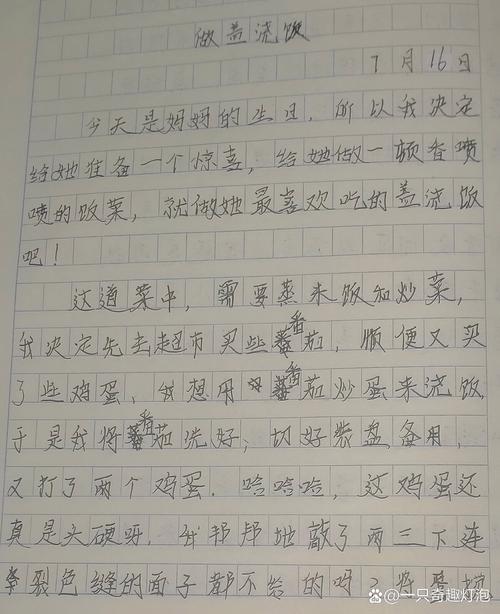 做盖浇饭
7月16日
今天是妈妈的生日，所以我决定
给她准备一个惊喜，给她做一顿香喷
喷的饭菜，就做她最喜欢吃的盖浇饭
吧！
这道菜中，需要蒸米饭和炒菜，
我决定先去超市买些番茄，顺便又买
了些鸡蛋，我想用番茄炒蛋来浇饭
于是我将番茄洗好，切好装盘备用，
又打了两个鸡蛋．哈哈哈，这鸡蛋还
真是头硬呀，我邦邦地敲了两三下连
裂色缝的面子都不给的呀？将
@一只奇趣灯泡